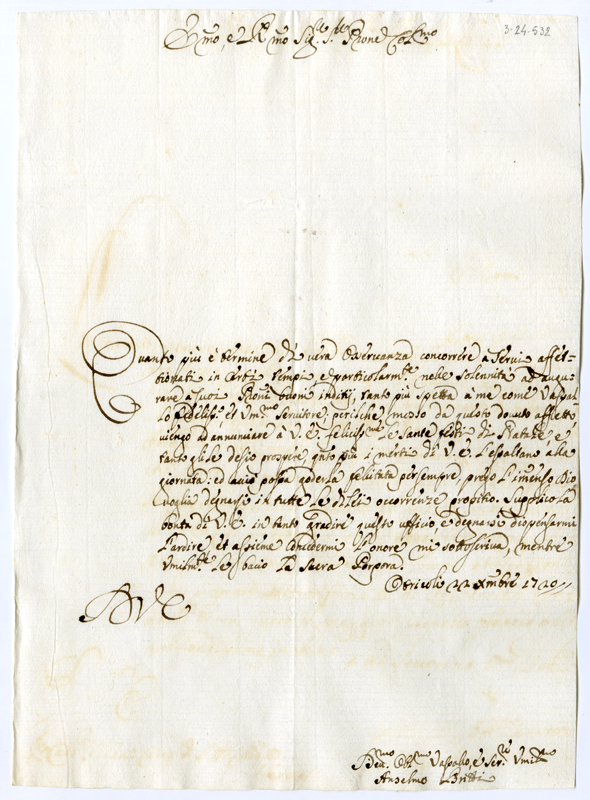 3-24-532
Em̃o, e R̃mo Sig.re Sig.re Pr̃one Col.mo
Quanto più è termine di vera osservanza concorrere a Servi affet-
tionati in certi tempi, e particolarm.te nelle solennità ad augu-
rare a suoi Pr̃oni buoni inditij, tanto più spetta à me come Vassal-
lo fedeliss.o, et Um.mo Servitore; perilche mosso da questo dovuto affetto
vengo ad annuntiare à V. E. feliciss.me le Sante feste di Natale, e
tanto gliele desio prospere, q̃nto più i meriti di V. E. l'esaltano alla
giornata; ed acciò possa goderla felicitata persempre, prego l'immenso Dio
voglia degnarsi in tutte le di lei occorrenze propitio. Supplico la
bontà di V. E. in tanto gradire questo ufficio, e degnarsi dispensarmi
l'ardire, et assieme concedermi l'onore mi sottoscriva, mentre
Umilm.te le bacio la Sacra Porpora.
Otricoli 22 Xmbre 1720
D V E
Dev.mo Obl.mo Vassallo, e Ser.re Umil.mo
Anselmo Britti